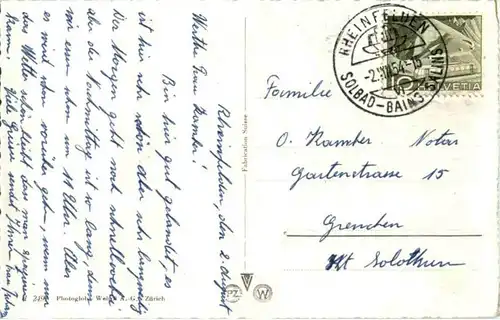 Rheinfelden, den 2. August
Werthe Frau Kamber!
Bin hier gut gelandet, es
ist hier sehr schön aber sehr langweilig
Der Morgen geht noch schnell vorbei
aber der Nachmittag ist so lang, denn
wir essen schon um 11 Uhr. Aber
es wird schon vorüber gehen, wenn nur
das Wetter schön bleibt das man spazieren
kann. Viele Grüsse sendet Ihnen Frau
RHEINFELDEN
-2.VIII.54-15
SOLBAD-BAINS SALINS
10
HELVETIA
Familie
O. Kamber Notar
Gartenstrasse 15
Grenchen
Kt Solothurn
Fabrication Suisse
Photoglob-Wehrli A.-G., Zürich
PZ
W